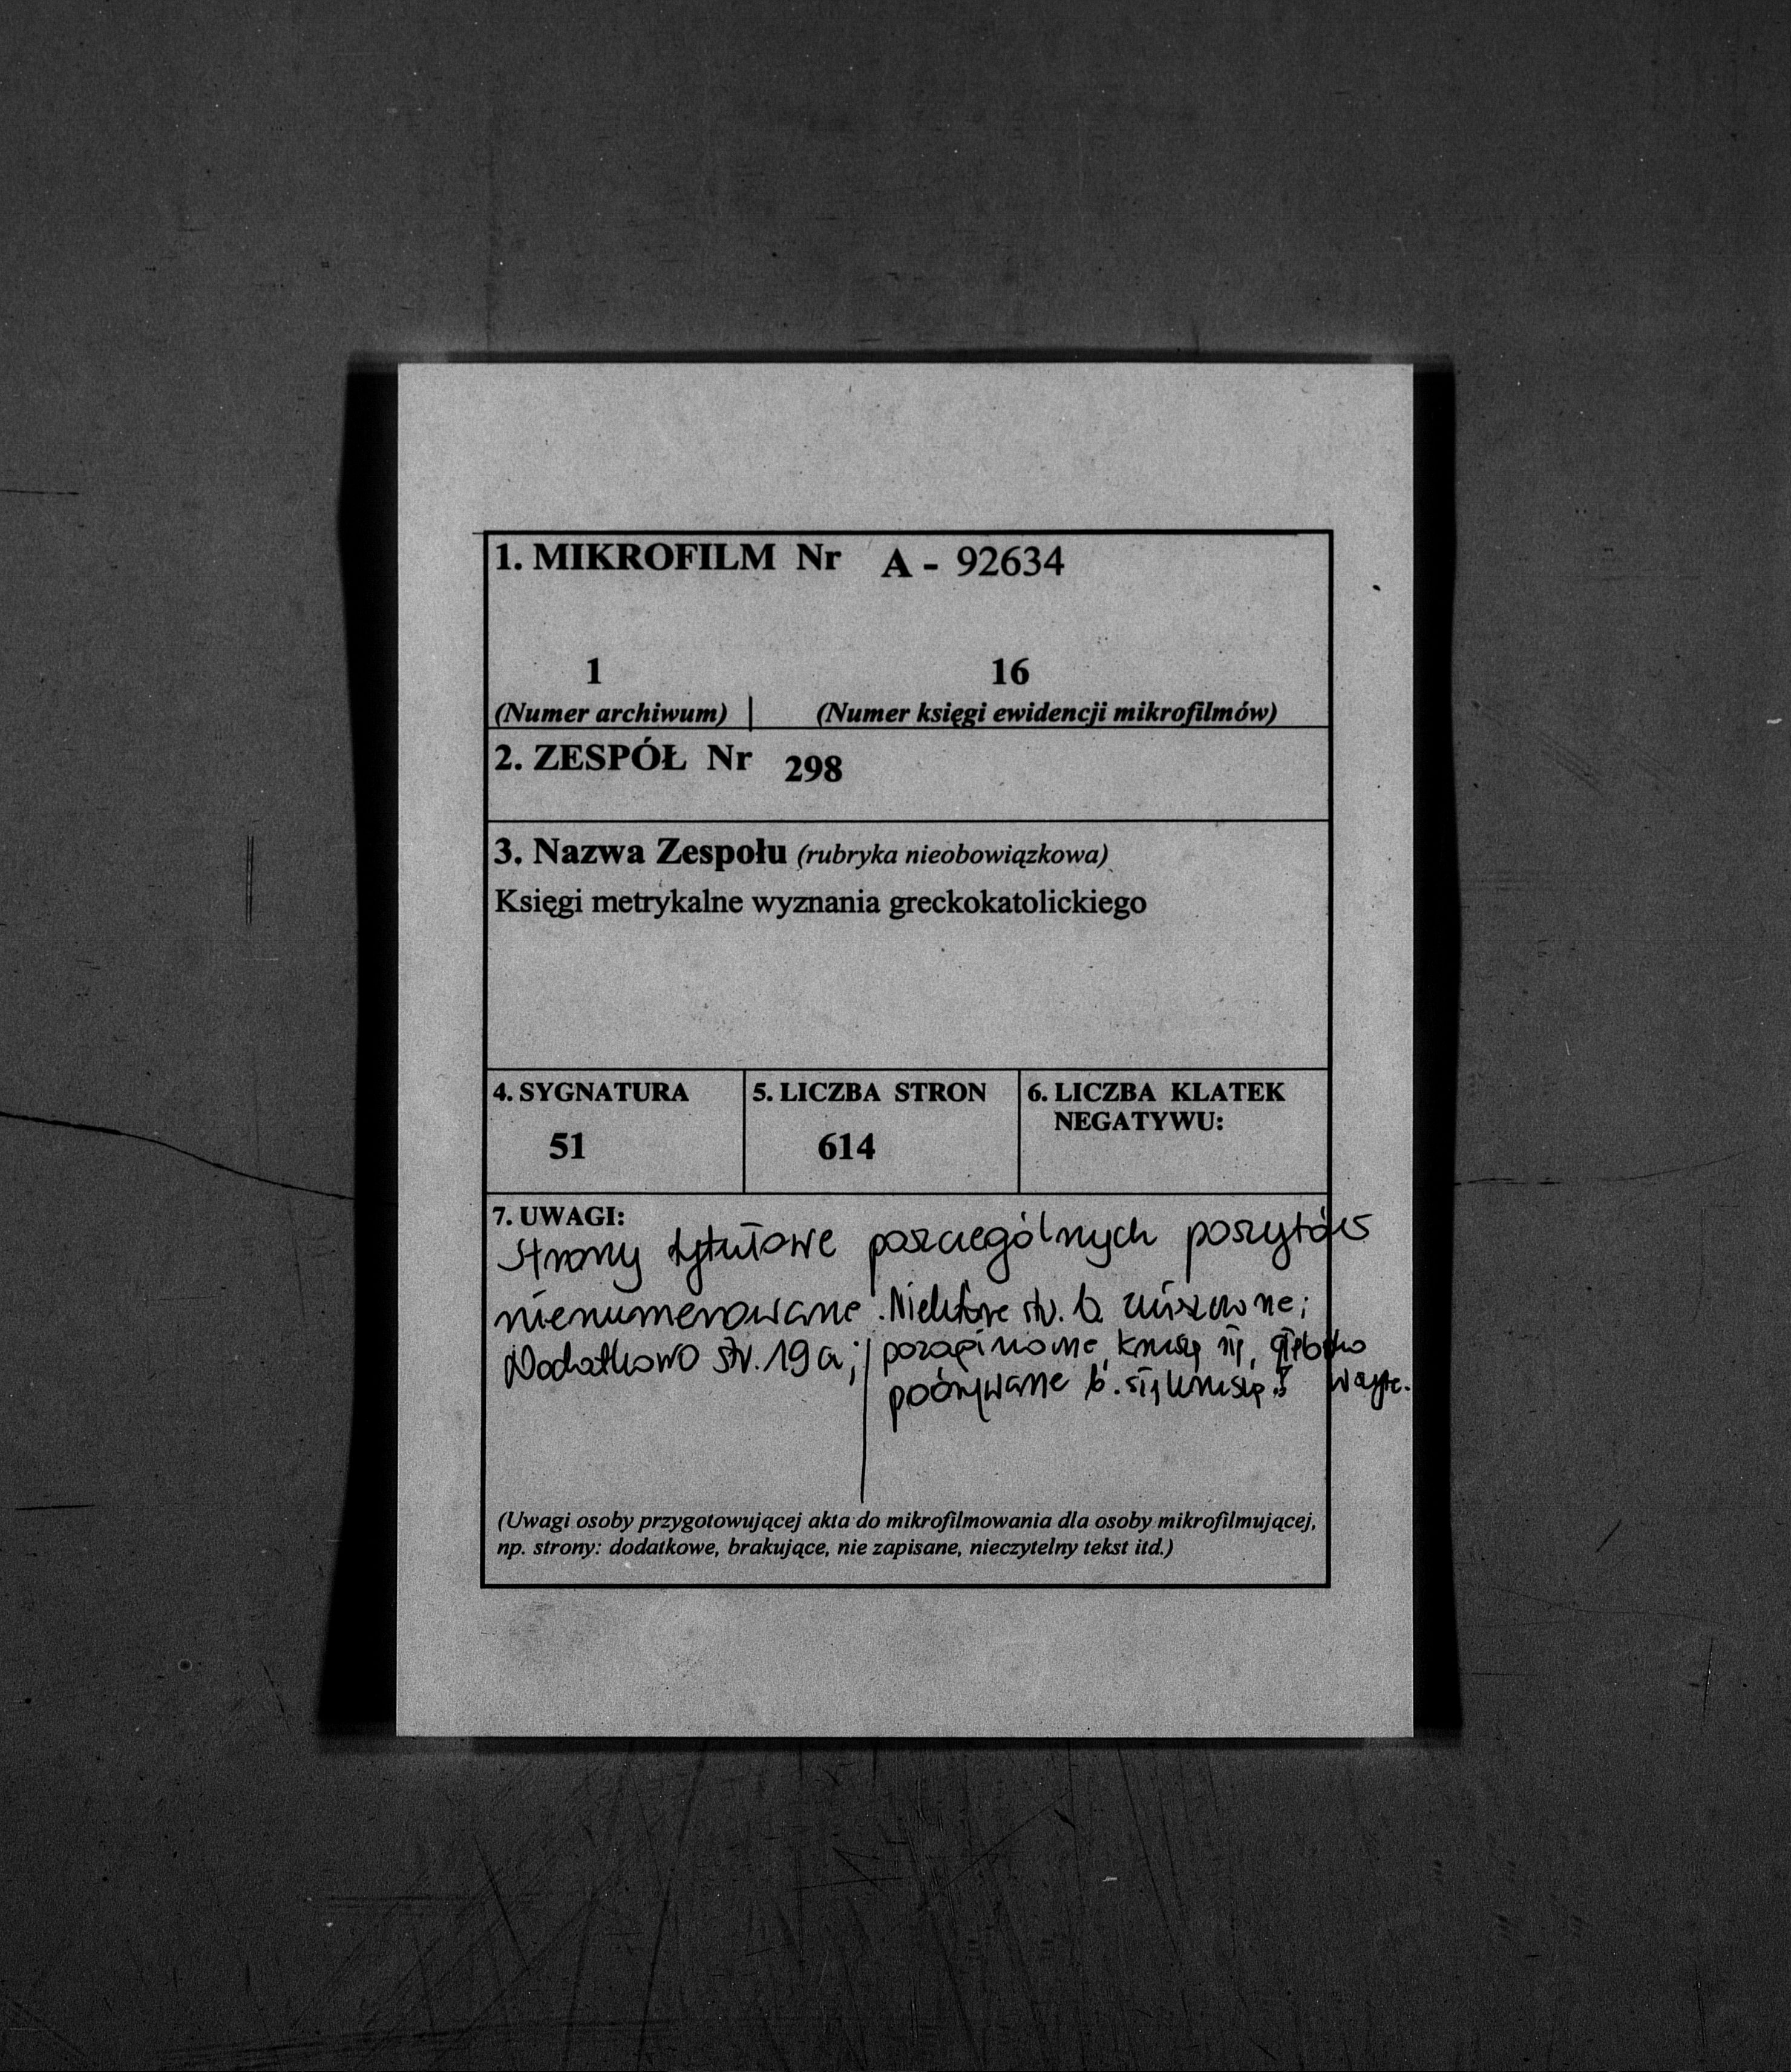 1. MIKROFILM Nr A - 92634
1 16
(Numer archiwum) (Numer księgi ewidencji mikrofilmów)
2. ZESPÓŁ Nr 298
3. Nazwa Zespołu (rubryka nieobowiązkowa)
Księgi metrykalne wyznania greckokatolickiego
4. SYGNATURA 5. LICZBA STRON 6. LICZBA KLATEK
NEGATYWU:
51 614
7. UWAGI:
Strony tytułowe poszczególnych poszytów
nienumerowane. Niektóre str. b. zniszczone;
Dodatkowo str. 19a; pozaginane, kruszą się, głęboko
podrywane b. się kruszą! wszyte.
(Uwagi osoby przygotowującej akta do mikrofilmowania dla osoby mikrofilmującej,
np. strony: dodatkowe, brakujące, nie zapisane, nieczytelny tekst itd.)